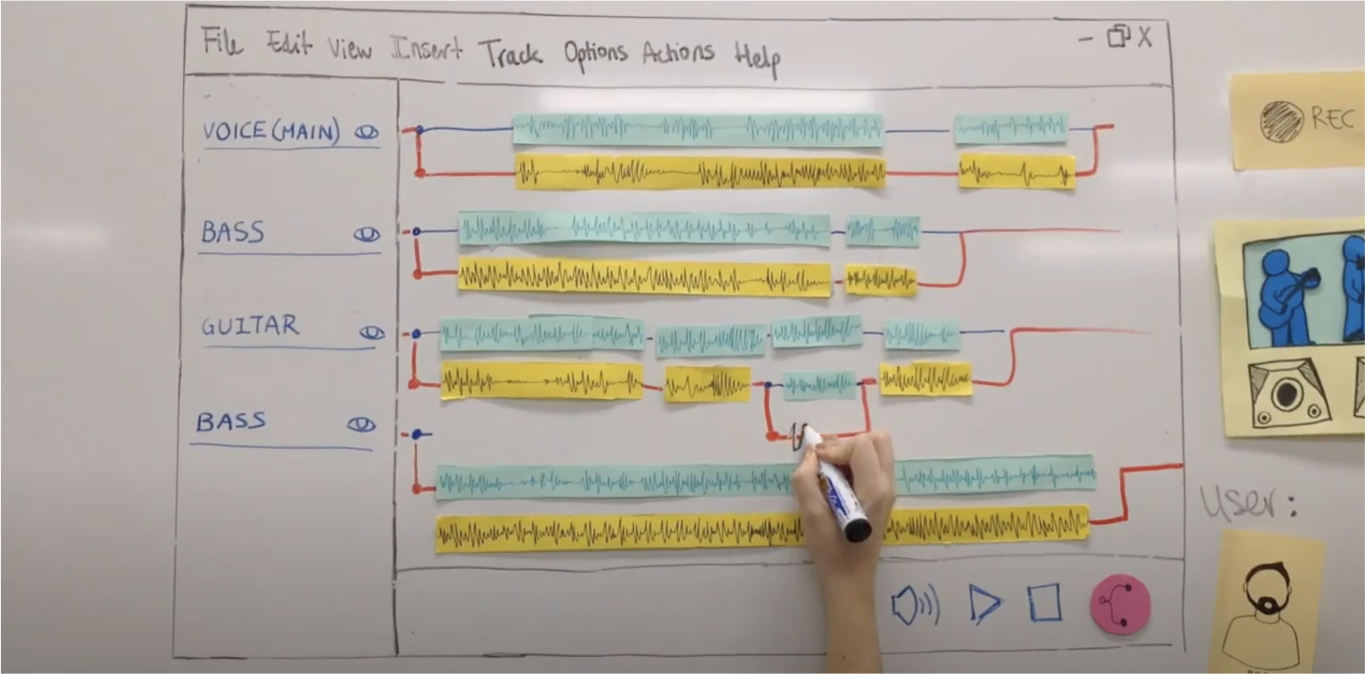 File Edit View Insert Track Options Actions Help
VOICE (MAIN)
REC
BASS
GUITAR
BASS
User: